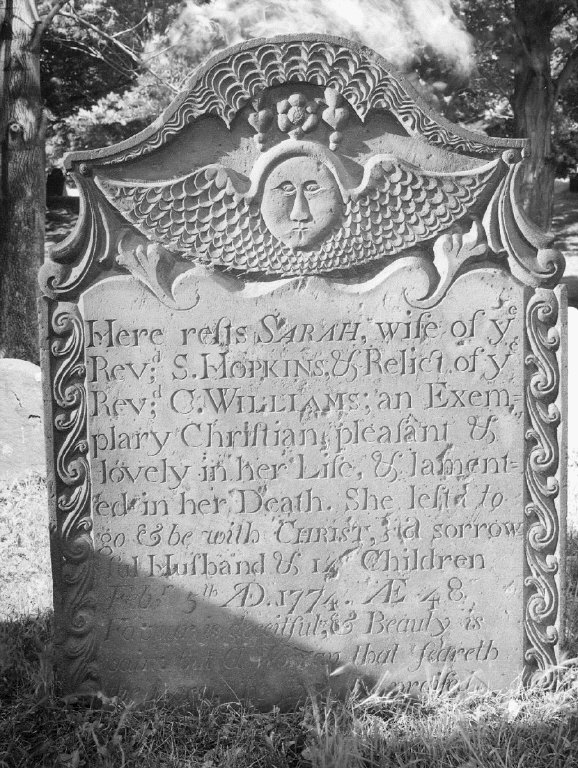 Here reſts SARAH, wife of yᵉ
Revᵈ; S. HOPKINS, & Relict of yᵉ
Revᵈ; C. WILLIAMS; an Exem-
plary Chriſtian, pleaſant &
lovely in her Life, & lament-
ed in her Death. She left to
go & be with CHRIST, a sorrow
ful Huſband & 14 Children
Febʳ 5ᵗʰ AD. 1774. Æ 48.
Favour is deceitful, & Beauty is
vain but a Woman that feareth